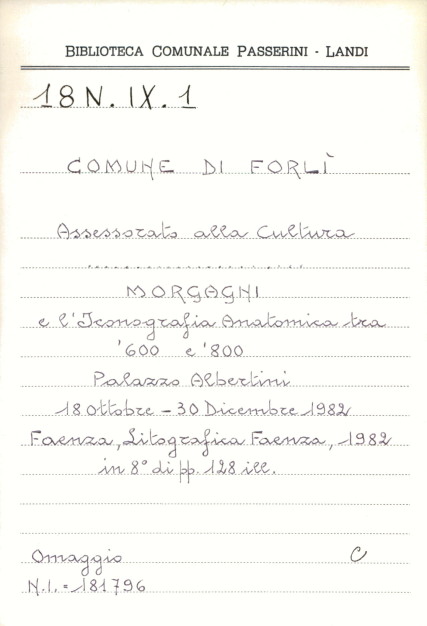 BIBLIOTECA COMUNALE PASSERINI - LANDI
18 N. IX. 1
COMUNE DI FORLÌ
Assessorato alla Cultura
....................
MORGAGNI
e l'Iconografia Anatomica tra
'600 e '800
Palazzo Albertini
18 Ottobre - 30 Dicembre 1982
Faenza, Litografica Faenza, 1982
in 8° di pp. 128 ill.
Omaggio C
N.I. = 181796